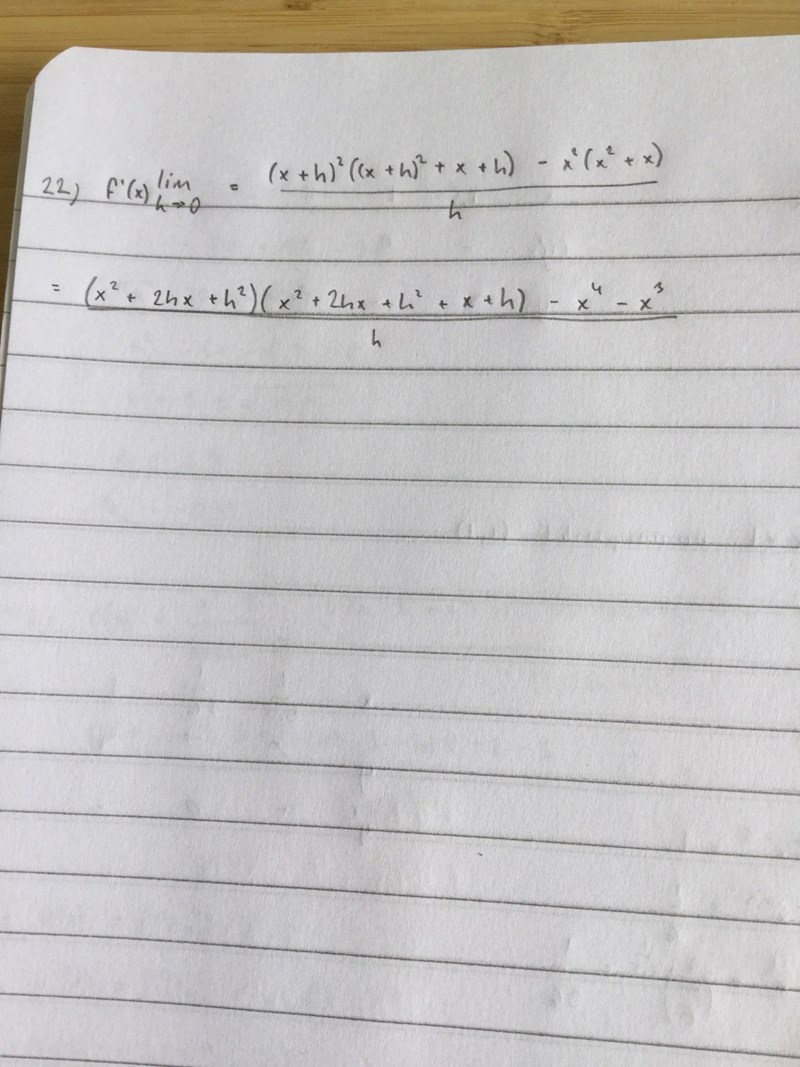 22) f'(x) lim h→0 = (x + h)² ((x + h)² + x + h) - x² (x² + x) / h
= (x² + 2hx + h²)( x² + 2hx + h² + x + h) - x⁴ - x³ / h